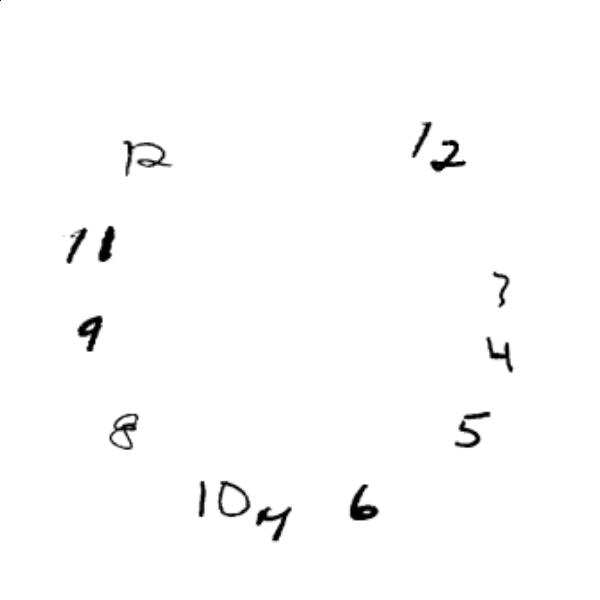 12 12
11
3
9
4
8 5
10 6